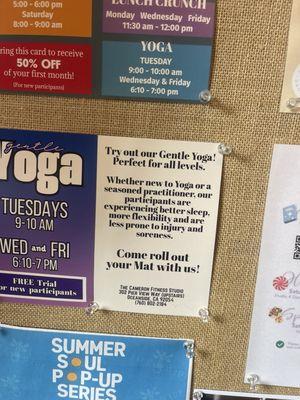 LUNCH CRUNCH
Monday Wednesday Friday
11:30 am - 12:00 pm
YOGA
TUESDAY
9:00 - 10:00 am
Wednesday & Friday
6:10 - 7:00 pm
YOGA
Saturday
8:00 - 9:00 am
ring this card to receive
50% OFF
of your first month!
(For new participants)
gentle
Yoga
TUESDAYS
9-10 AM
WED and FRI
6:10-7 PM
FREE Trial
for new participants
Try out our Gentle Yoga!
Perfect for all levels.
Whether new to Yoga or a
seasoned practitioner, our
participants are
experiencing better sleep,
more flexibility and are
less prone to injury and
soreness.
Come roll out
your Mat with us!
THE CAMERON FITNESS STUDIO
302 PIER VIEW WAY (UPSTAIRS)
OCEANSIDE, CA 92054
(760) 802-2184
SUMMER
SOUL
POP-UP
SERIES